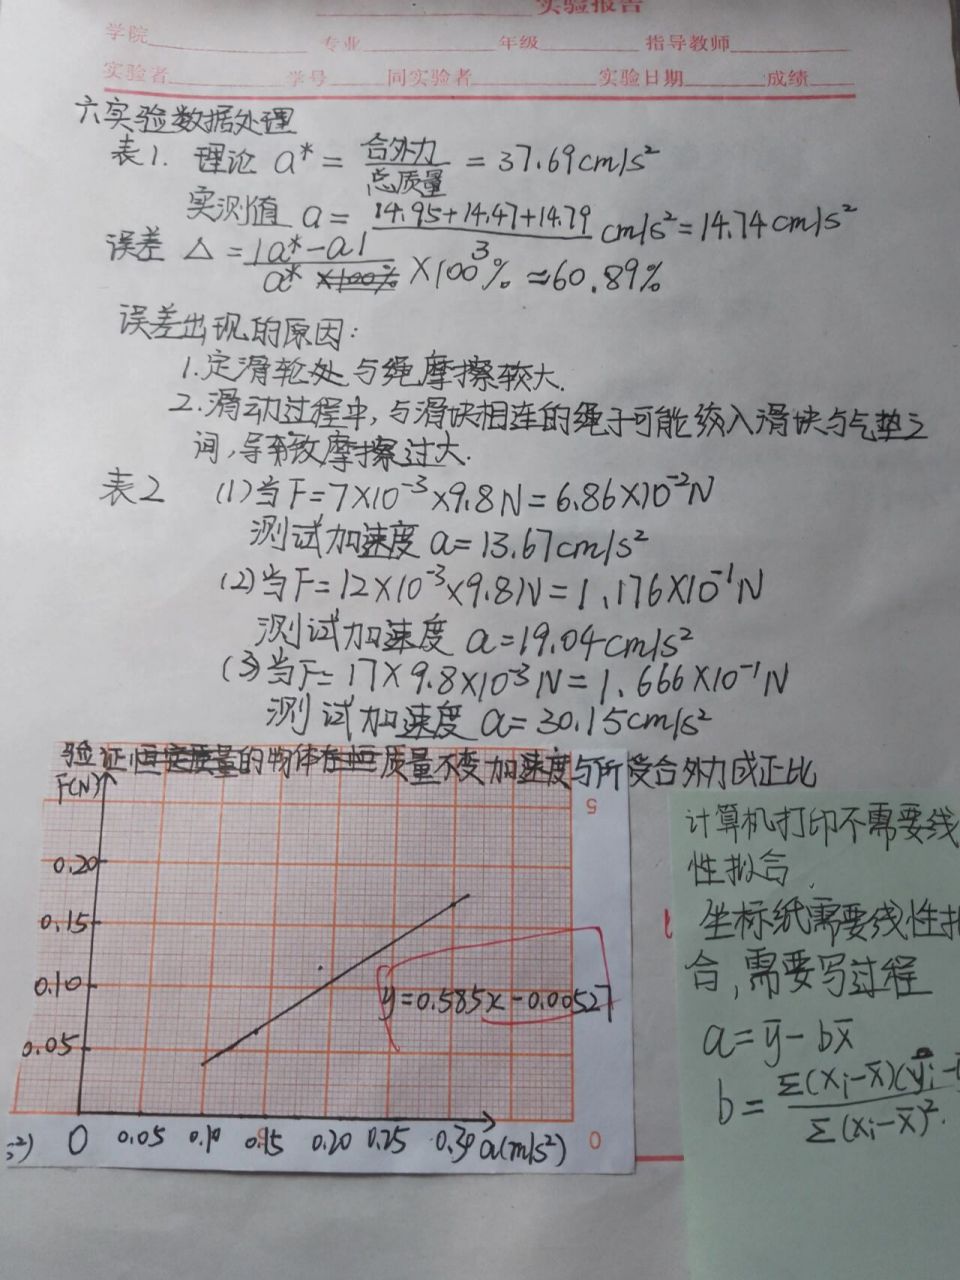 实验报告
学院 专业 年级 指导教师
实验者 学号 同实验者 实验日期 成绩
六实验数据处理
表1. 理论 a* = 合外力/总质量 = 37.69cm/s²
实测值 a = (14.95+14.47+14.79)/3 cm/s² = 14.74cm/s²
误差 Δ = |a*-a|/a* ×100% ×100% ≈60.89%
误差出现的原因:
1.定滑轮处与绳摩擦较大.
2.滑动过程中,与滑块相连的绳子可能绞入滑块与气垫之
间,导致摩擦过大.
表2 (1)当F=7×10⁻³×9.8N=6.86×10⁻²N
测试加速度 a=13.67cm/s²
(2)当F=12×10⁻³×9.8N=1.176×10⁻¹N
测试加速度 a=19.04cm/s²
(3)当F=17×9.8×10⁻³N=1.666×10⁻¹N
测试加速度 a=30.15cm/s²
验证恒定质量的物体在恒质量不变加速度与所受合外力成正比
F(N)
5
0.20
0.15
0.10
0.05
y=0.585x-0.00527
0 0.05 0.10 0.15 0.20 0.25 0.30 a(m/s²)
0
s²)
计算机打印不需要线
性拟合.
坐标纸需要线性拟
合,需要写过程
a=ȳ-bx̄
b=Σ(xᵢ-x̄)(yᵢ-/Σ(xᵢ-x̄)².